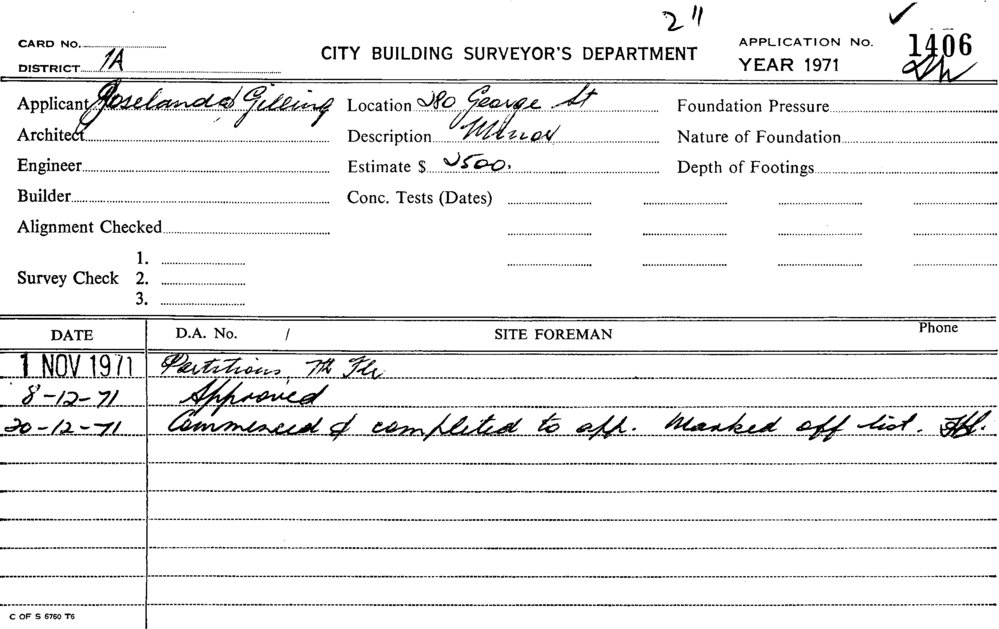 2"
CARD No.
DISTRICT 1A
CITY BUILDING SURVEYOR'S DEPARTMENT
APPLICATION No. 1406
YEAR 1971
Applicant Joseland & Gilling
Location 280 George St
Foundation Pressure
Architect
Description Minor
Nature of Foundation
Engineer
Estimate $ 2500.
Depth of Footings
Builder
Conc. Tests (Dates)
Alignment Checked
Survey Check 1.
2.
3.
DATE D.A. No. / SITE FOREMAN Phone
1 NOV 1971 Partitions, 7th Flr
8-12-71 Approved
20-12-71 Commenced & completed to app. Marked off list.
C OF S 6760 T6